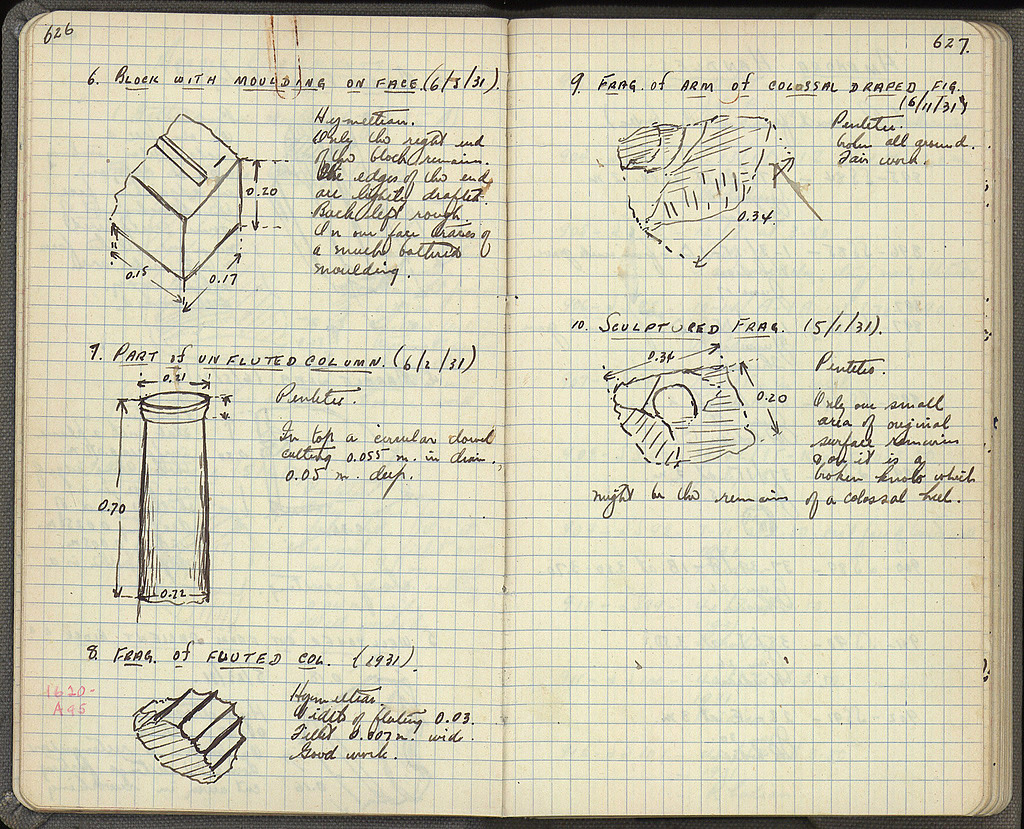 626
6. BLOCK WITH MOULDING ON FACE (6/3/31).
Hymettian.
Only the right end
of the block remains.
The edges of the end
are lightly drafted.
Back left rough.
On our face traces of
a much battered
moulding.
0.20
0.15
0.17
7. PART of UNFLUTED COLUMN. (6/2/31)
0.21
Pentelic.
In top a circular dowel
cutting 0.055 m. in diam.,
0.05 m. deep.
0.70
0.22
8. FRAG. of FLUTED COL. (1931).
1620-
A 95
Hymettian.
Width of fluting 0.03.
Fillet 0.007 m. wide.
Good work.
627.
9. FRAG. of ARM of COLOSSAL DRAPED FIG.
(6/11/31)
Pentelic.
broken all around.
Fair work.
0.34
10. SCULPTURED FRAG. (5/1/31).
0.34
Pentelic.
0.20
Only one small
area of original
surface remains
& on it is a
broken knob which
might be the remains of a colossal heel.